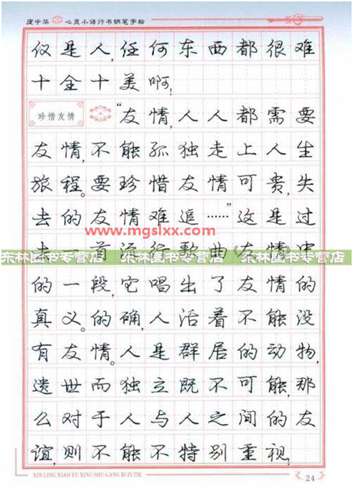 庞中华 心灵小语行书钢笔字帖
仅是人,任何东西都很难
十全十美啊!
珍惜友情 "友情,人人都需要
友情,不能孤独走上人生
旅程。要珍惜友情可贵,失
去的友情难追……"这是过
www.mgslxx.com
去一首流行歌曲《友情》中
东林图书专营店 东林图书专营店 东林图书专营店
的一段,它唱出了友情的
真义。的确,人活着不能没
有友情。人是群居的动物,
遗世而独立既不可能,那
么对于人与人之间的友
谊,则不能不特别重视,
24